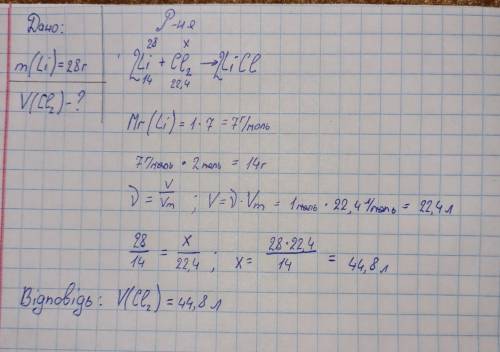 Дано:
Р-ня
m(Li)=28г
28 x
2Li + Cl₂ → 2LiCl
14 22,4
V(Cl₂) - ?
Mr(Li) = 1·7 = 7 г/моль
7 г/моль · 2 моль = 14г
ν = V/Vm ; V = ν·Vm = 1 моль · 22,4 л/моль = 22,4 л
28/14 = x/22,4 ; x = 28·22,4/14 = 44,8 л
Відповідь: V(Cl₂) = 44,8 л